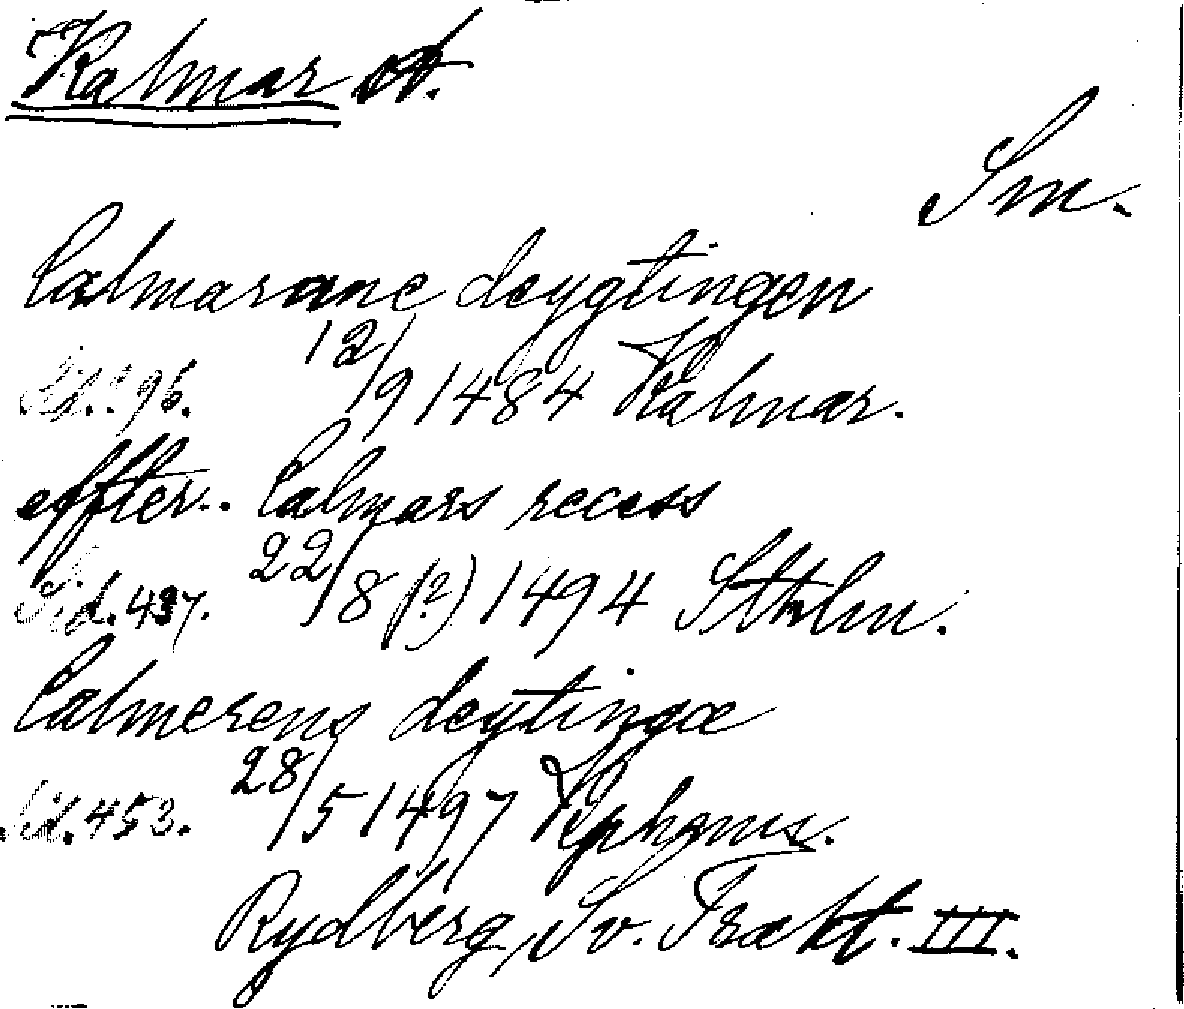 Kalmar st.
Sm.
Calmarane deygtingen
Sid. 396. 12/9 1484 Kalmar.
effter.. Calmars recess
Sid. 437. 22/8 (?) 1494 Sthlm.
Calmerens deytingæ
Sid. 453. 28/5 1497 Kphgms.
Rydberg, Sv. Trakt. III.